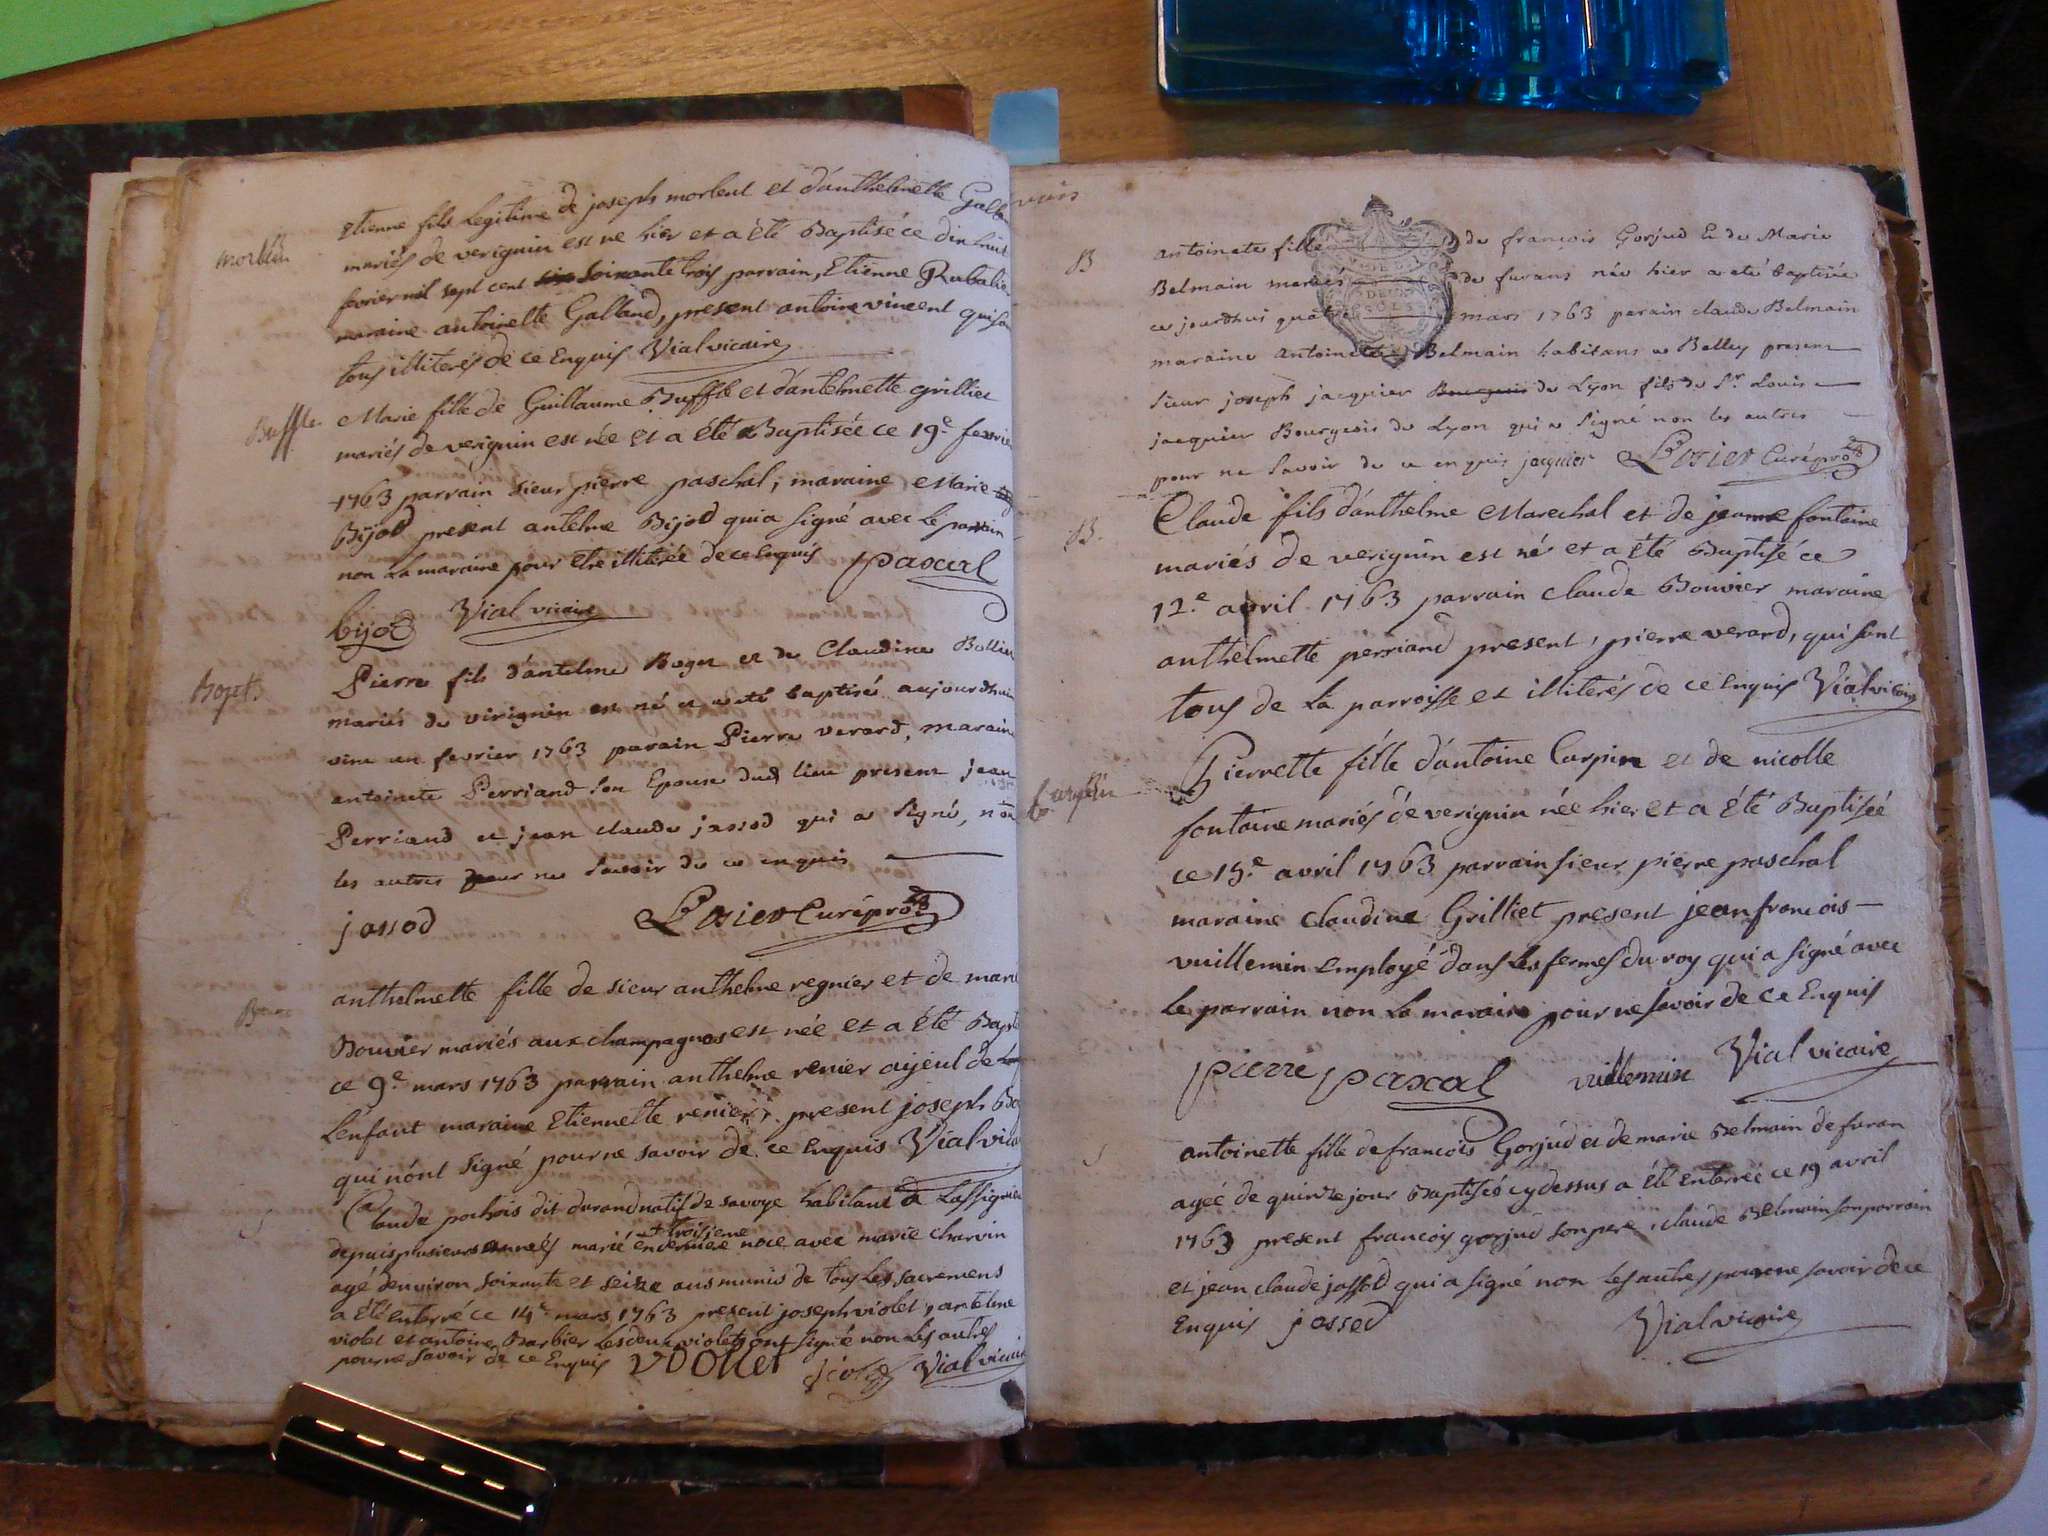 morblin
Etienne fils Legitime de joseph morlent et d'anthelmette
mariés de verignin est ne hier et a été Baptisé ce dix huit
fevrier mil sept cent soixante trois parrain, Etienne
maraine antoinette Galland, present antoine vincent qui
tous illiterés de ce Enquis Vial vicaire
Buffle
Marie fille de Guillaume Buffle et d'antelmette grilliet
mariés de verignin est née et a été Baptisée ce 19e fevrier
1763 parrain sieur pierre paschal, maraine Marie
Bijod present antelme Bijod qui a signé avec Le parrain
non La maraine pour Etre illiterée de ce Enquis pascal
bijod Vial vicaire
Pierre fils d'antelme Boget et de Claudine
mariés de virignin est né et a eté baptisé aujourdhui
vint un fevrier 1763 parain Pierre verard, maraine
antoinete Perriand son Epouse dud lieu present jean
Perriand et jean claude jassod qui a signé, non
les autres pour ne savoir de ce enquis
jassod Losier Curé
anthelmette fille de sieur anthelme regnier et de marie
Bouvier mariés aux champagnes est née et a été
ce 9e mars 1763 parrain anthelme renier ayeul de
L'enfant maraine Etiennette renier, present joseph
qui n'ont signé pour ne savoir de ce Enquis Vial
S
Claude pochois dit durand natif de savoye habitant a
+ troisieme
depuis plusieurs années marié en derniere noce avec marie charvin
agé d'environ soixante et seize ans munis de tous Les sacremens
a été Enterré ce 14e mars 1763 present joseph violet, antelme
violet et antoine Barbier Les deux violets ont signé non Les autres
pour ne savoir de ce Enquis Vial vicaire
B
antoinete fille de françois Gorjud et de Marie
Belmain mariés de furans née hier a eté baptisée
ce jourdhui quatre mars 1763 parain claude Belmain
maraine Antoinete Belmain habitans a Belley present
sieur joseph jacquier Bourgeois de Lyon fils de Sr. Louis
jacquier Bourgeois de Lyon qui a signé non les autres
pour ne savoir de ce enquis jacquier Losier Curé
B.
Claude fils d'anthelme Marechal et de jeanne fontaine
mariés de verignin est né et a été Baptisé ce
12.e avril 1763 parrain claude Bouvier maraine
anthelmette perriand present, pierre verard, qui sont
tous de La parroisse et illiterés de ce Enquis Vial vicaire
Pierrette fille d'antoine Carpin et de nicolle
fontaine mariés de verignin née hier et a été Baptisée
ce 15.e avril 1763 parrain sieur pierre paschal
maraine claudine Grilliet present jean francois
vuillemin Employé dans Les fermes du roy qui a signé avec
Le parrain non La maraine pour ne savoir de ce Enquis
pierre pascal vuillemin Vial vicaire
S
antoinette fille de francois Gorjud et de marie Belmain de furan
ageé de quinze jour Baptiseé cy dessus a été Enterreé ce 19 avril
1763 present francois gorjud son pere, claude Belmain son parrain
et jean claude jassod qui a signé non Les autres pour ne savoir de ce
Enquis jassod Vial vicaire